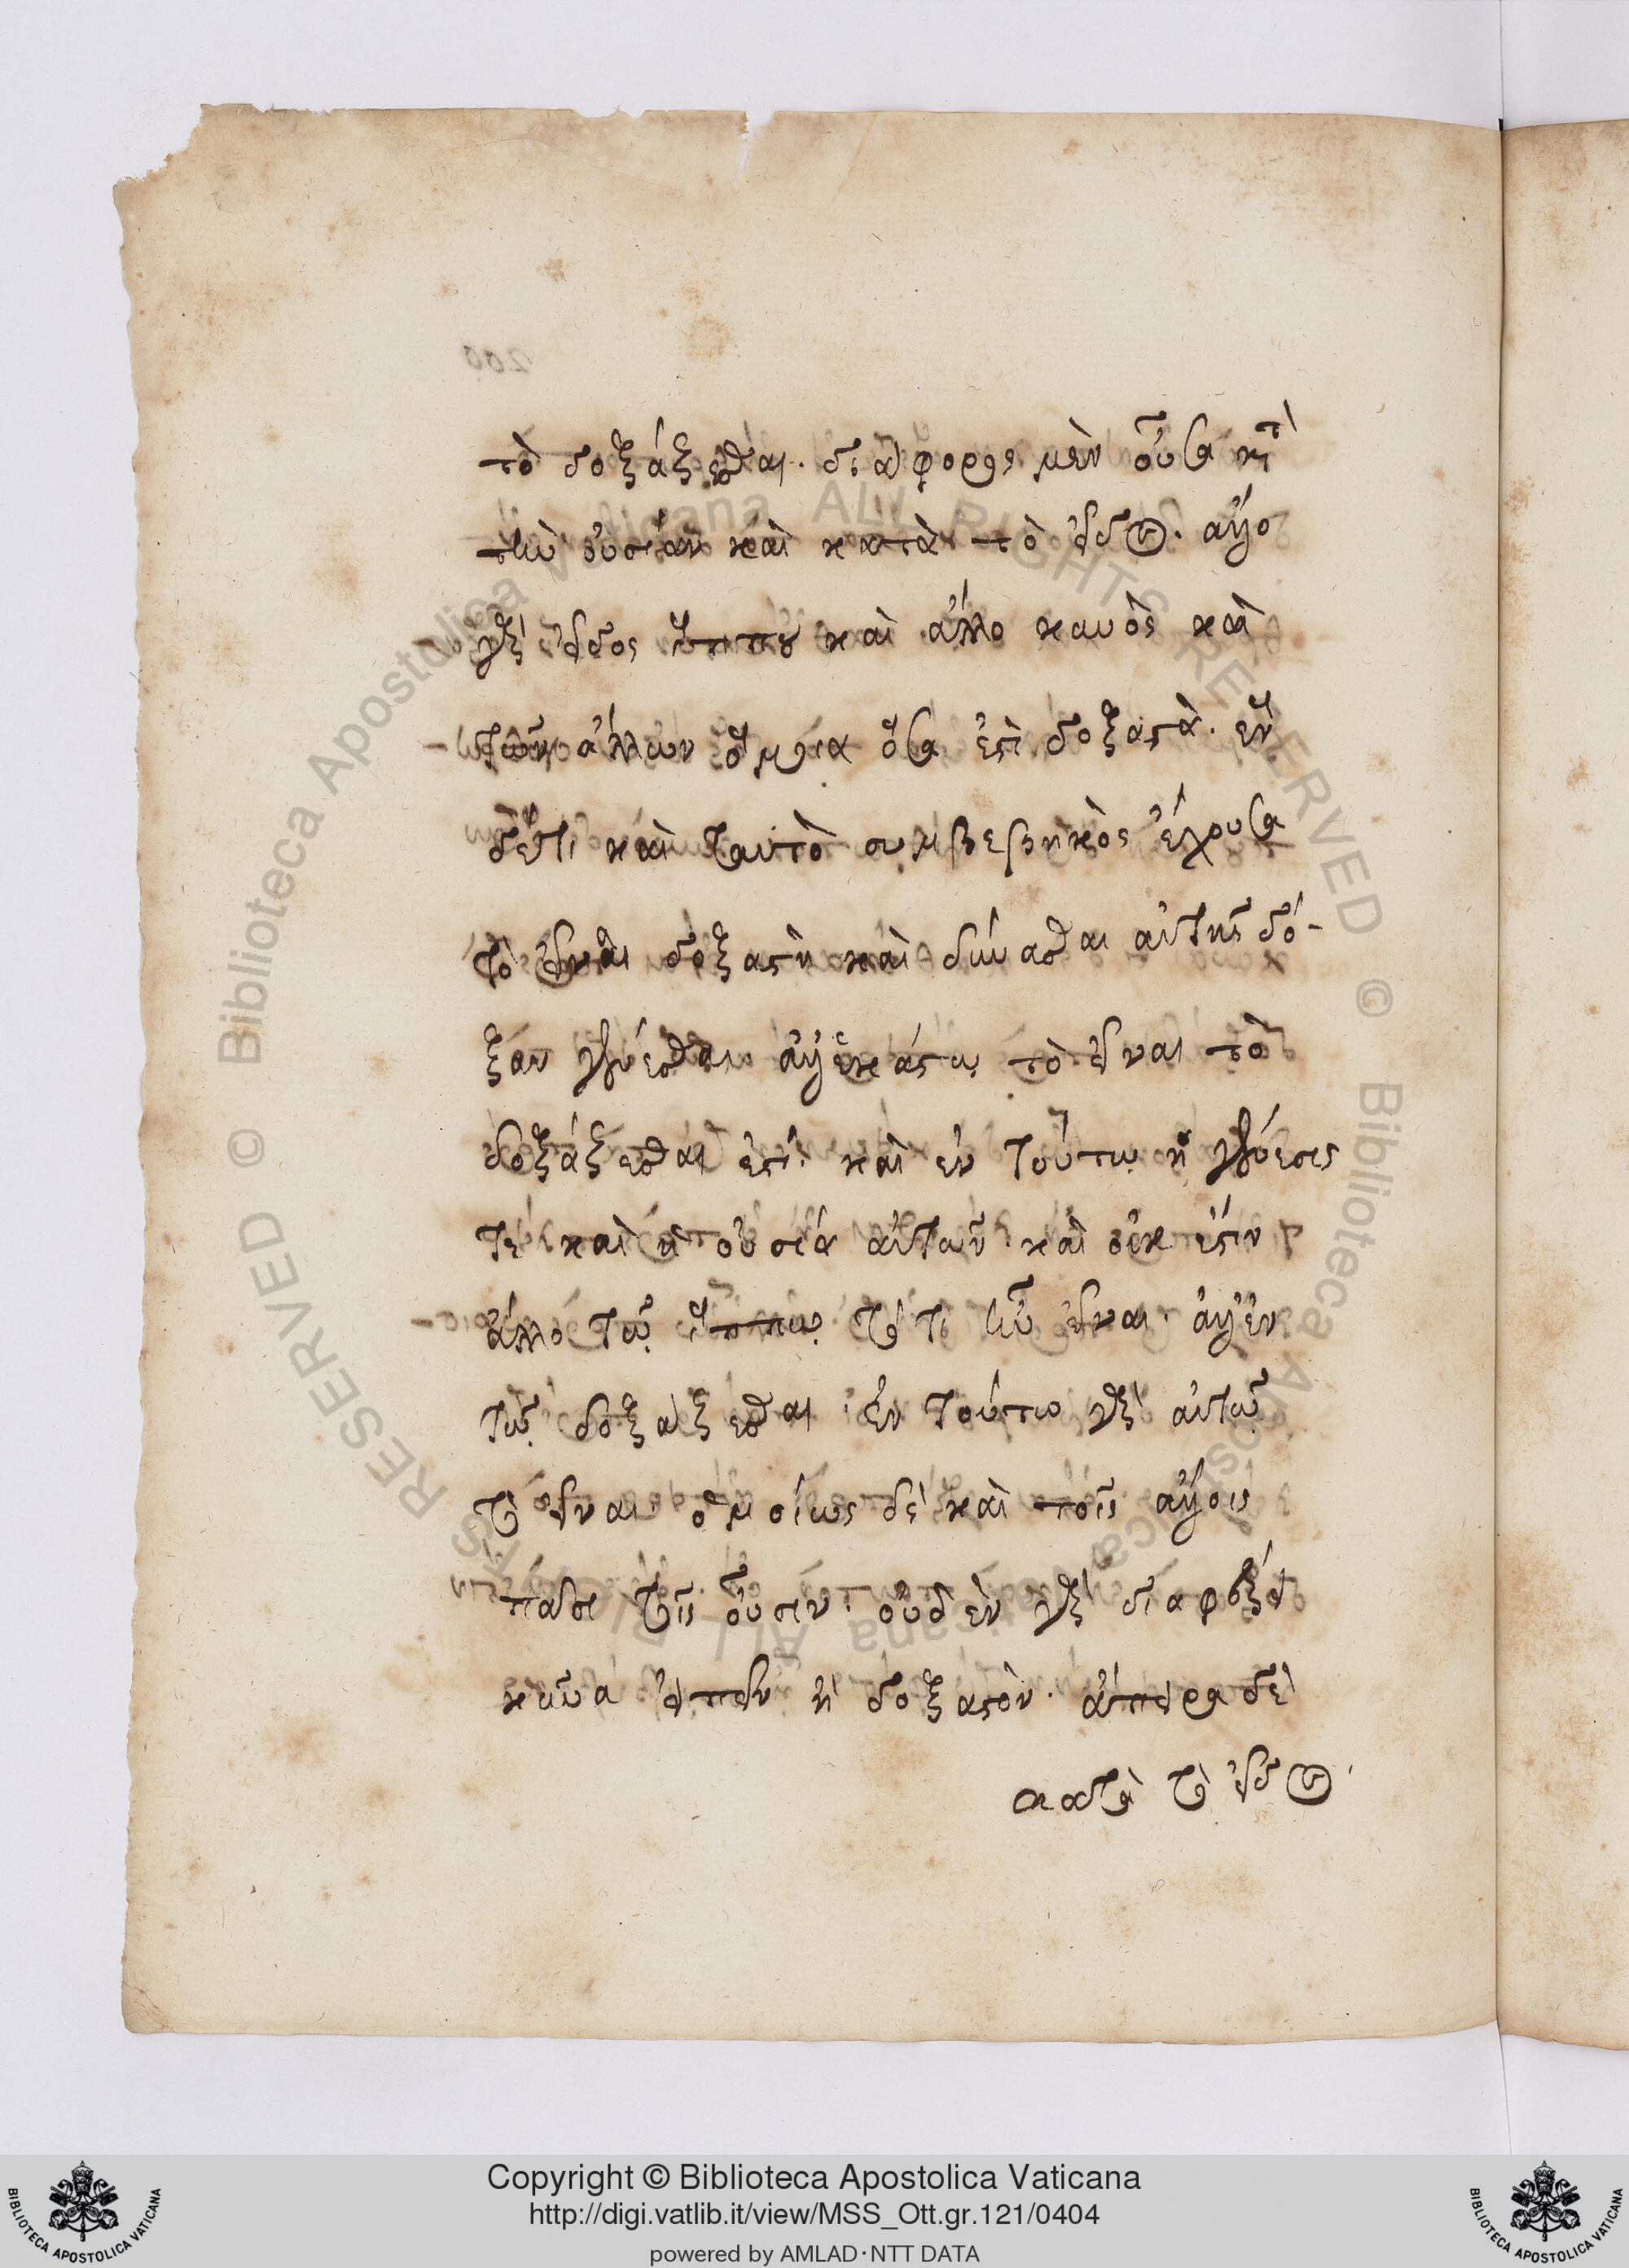 τὸ δοξάζεσθαι. διάφορος μὲν οὖσα κατὰ
τὴν οὐσίαν καὶ κατὰ τὸ εἶδος. ἄλλο
γὰρ εἶδος ἵππου καὶ ἄλλο κυνὸς καὶ
τῶν ἄλλων ὅμοια ὅσα ἐστὶ δοξαστά. ἓν
δέ τι καὶ ταυτὸ συμβεβηκὸς ἔχουσα
τὸ εἶναι δοξαστὴ καὶ δύνασθαι αὐτῆς δό-
ξαν γενέσθαι ἀλλ' ἑκάστω τὸ εἶναι τὸ
δοξάζεσθαι ἐστί. καὶ ἐν τούτω ἡ γένεσις
τε καὶ ἡ οὐσία αὐτῶν. καὶ οὐκ ἔστιν
ἄλλο τῶ ἵππω τὸ τί ἦν εἶναι. ἀλλ' ἐν
τῶ δοξάζεσθαι. ἐν τούτω γὰρ αὐτῶ
τὸ εἶναι. ὁμοίως δὲ καὶ τοῖς ἄλλοις
πᾶσι τοῖς οὖσιν. οὐδὲν γὰρ διαφέρει
κύνα εἰπεῖν ἢ δοξαστόν. ἄπειρα δὲ
κατὰ τὸ εἶδος
200
Copyright © Biblioteca Apostolica Vaticana
http://digi.vatlib.it/view/MSS_Ott.gr.121/0404
powered by AMLAD·NTT DATA
BIBLIOTECA APOSTOLICA VATICANA
BIBLIOTECA APOSTOLICA VATICANA
© Biblioteca Apostolica Vaticana ALL RIGHTS RESERVED
© Biblioteca Apostolica Vaticana ALL RIGHTS RESERVED